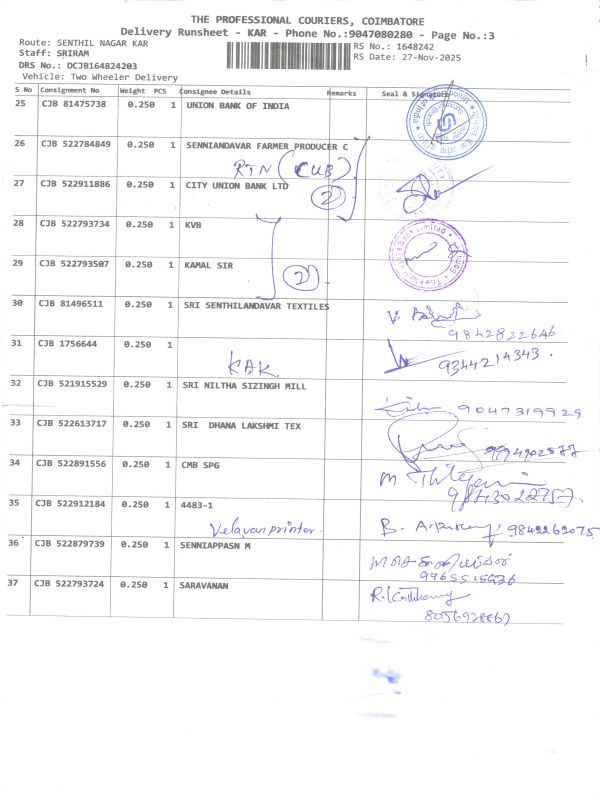 THE PROFESSIONAL COURIERS, COIMBATORE
Delivery Runsheet - KAR - Phone No.:9047080280 - Page No.:3
Route: SENTHIL NAGAR KAR
RS No.: 1648242
Staff: SRIRAM
RS Date: 27-Nov-2025
DRS No.: DCJB164824203
Vehicle: Two Wheeler Delivery
S No Consignment No Weight PCS Consignee Details Remarks Seal & Signature
25 CJB 81475738 0.250 1 UNION BANK OF INDIA
26 CJB 522784849 0.250 1 SENNIANDAVAR FARMER PRODUCER C
RTN (CUB)
27 CJB 522911886 0.250 1 CITY UNION BANK LTD
2
28 CJB 522793734 0.250 1 KVB
29 CJB 522793507 0.250 1 KAMAL SIR
2
30 CJB 81496511 0.250 1 SRI SENTHILANDAVAR TEXTILES
9842822646
31 CJB 1756644 0.250 1
KAK
9344214343.
32 CJB 521915529 0.250 1 SRI NILTHA SIZINGH MILL
9047319929
33 CJB 522613717 0.250 1 SRI DHANA LAKSHMI TEX
34 CJB 522891556 0.250 1 CMB SPG
35 CJB 522912184 0.250 1 4483-1
Velavan printer.
9842269075
36 CJB 522879739 0.250 1 SENNIAPPASN M
9965515936
37 CJB 522793724 0.250 1 SARAVANAN
8056928867